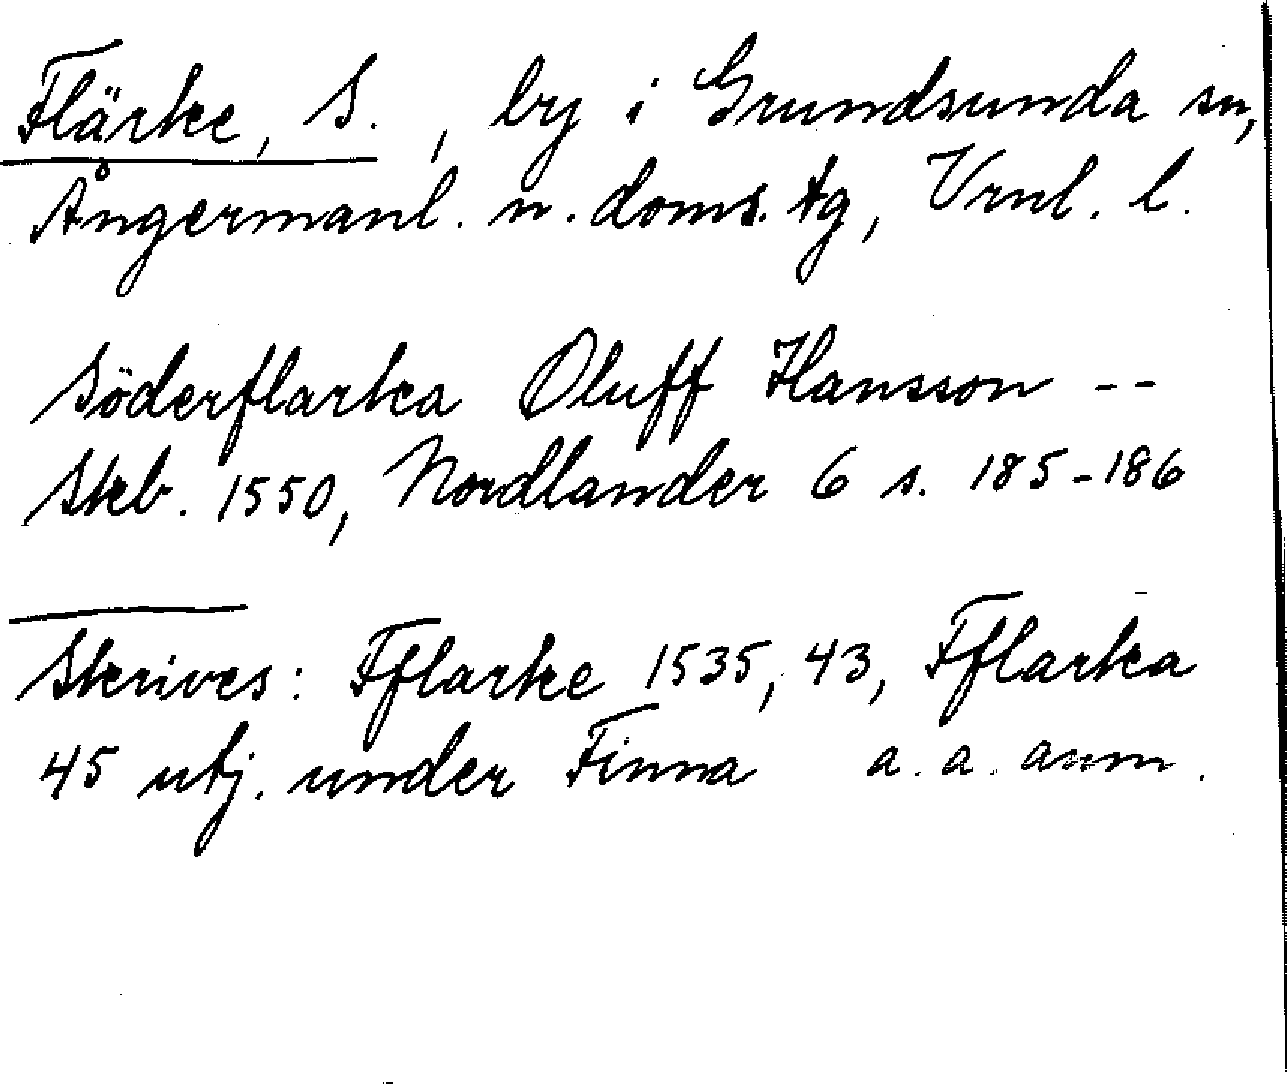 Flärke, S. , by i Grundsunda sn,
Ångermanl. n. doms. tg, Vrnl. l.
Söderflarka Oluff Hansson --
Skb. 1550, Nordlander 6 s. 185-186
Skrives: Fflarke 1535, 43, Fflarka
45 utj. under Finna a. a. anm.